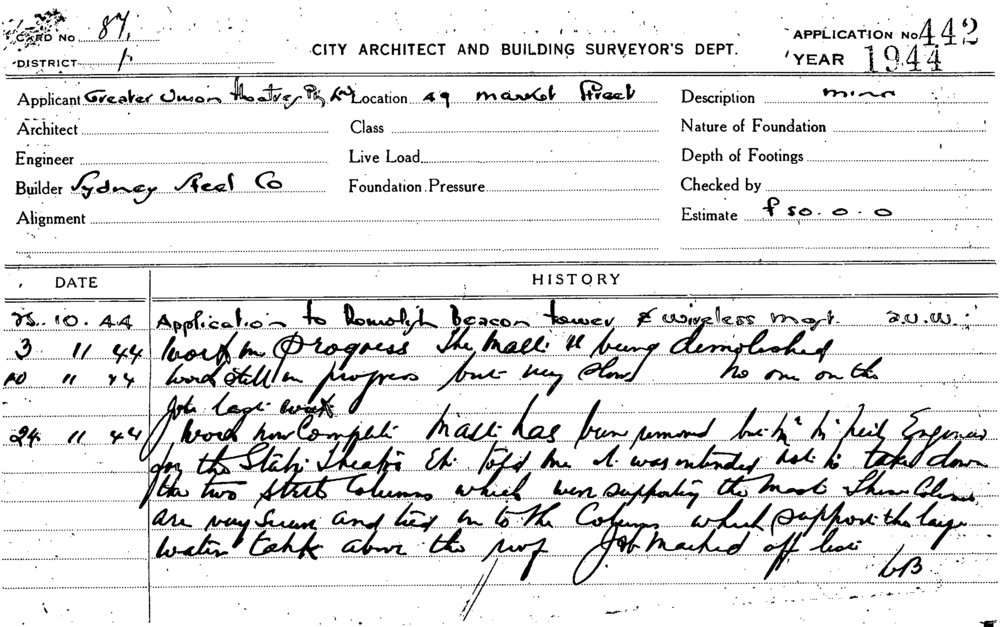 CARD No 87.
DISTRICT 1.
CITY ARCHITECT AND BUILDING SURVEYOR'S DEPT.
APPLICATION No 442
YEAR 1944
Applicant Greater Union Theatres Pty Ltd Location 49 Market Street Description minor
Architect Class Nature of Foundation
Engineer Live Load Depth of Footings
Builder Sydney Steel Co Foundation Pressure Checked by
Alignment Estimate £50.0.0
DATE HISTORY
25. 10. 44 Application to Demolish Beacon tower & wireless mast.
3 11 44 Work in Progress The Mast is being demolished
10 11 44 Work still in progress but very slow No one on the
Job last week
24 11 44 Work now Complete Mast has been removed but Engineer
for the State Theatre told me it was intended not to take down
the two steel Columns which were supporting the mast These Columns
are very secure and tied in to the Columns which support the large
water tank above the roof Job marked off list